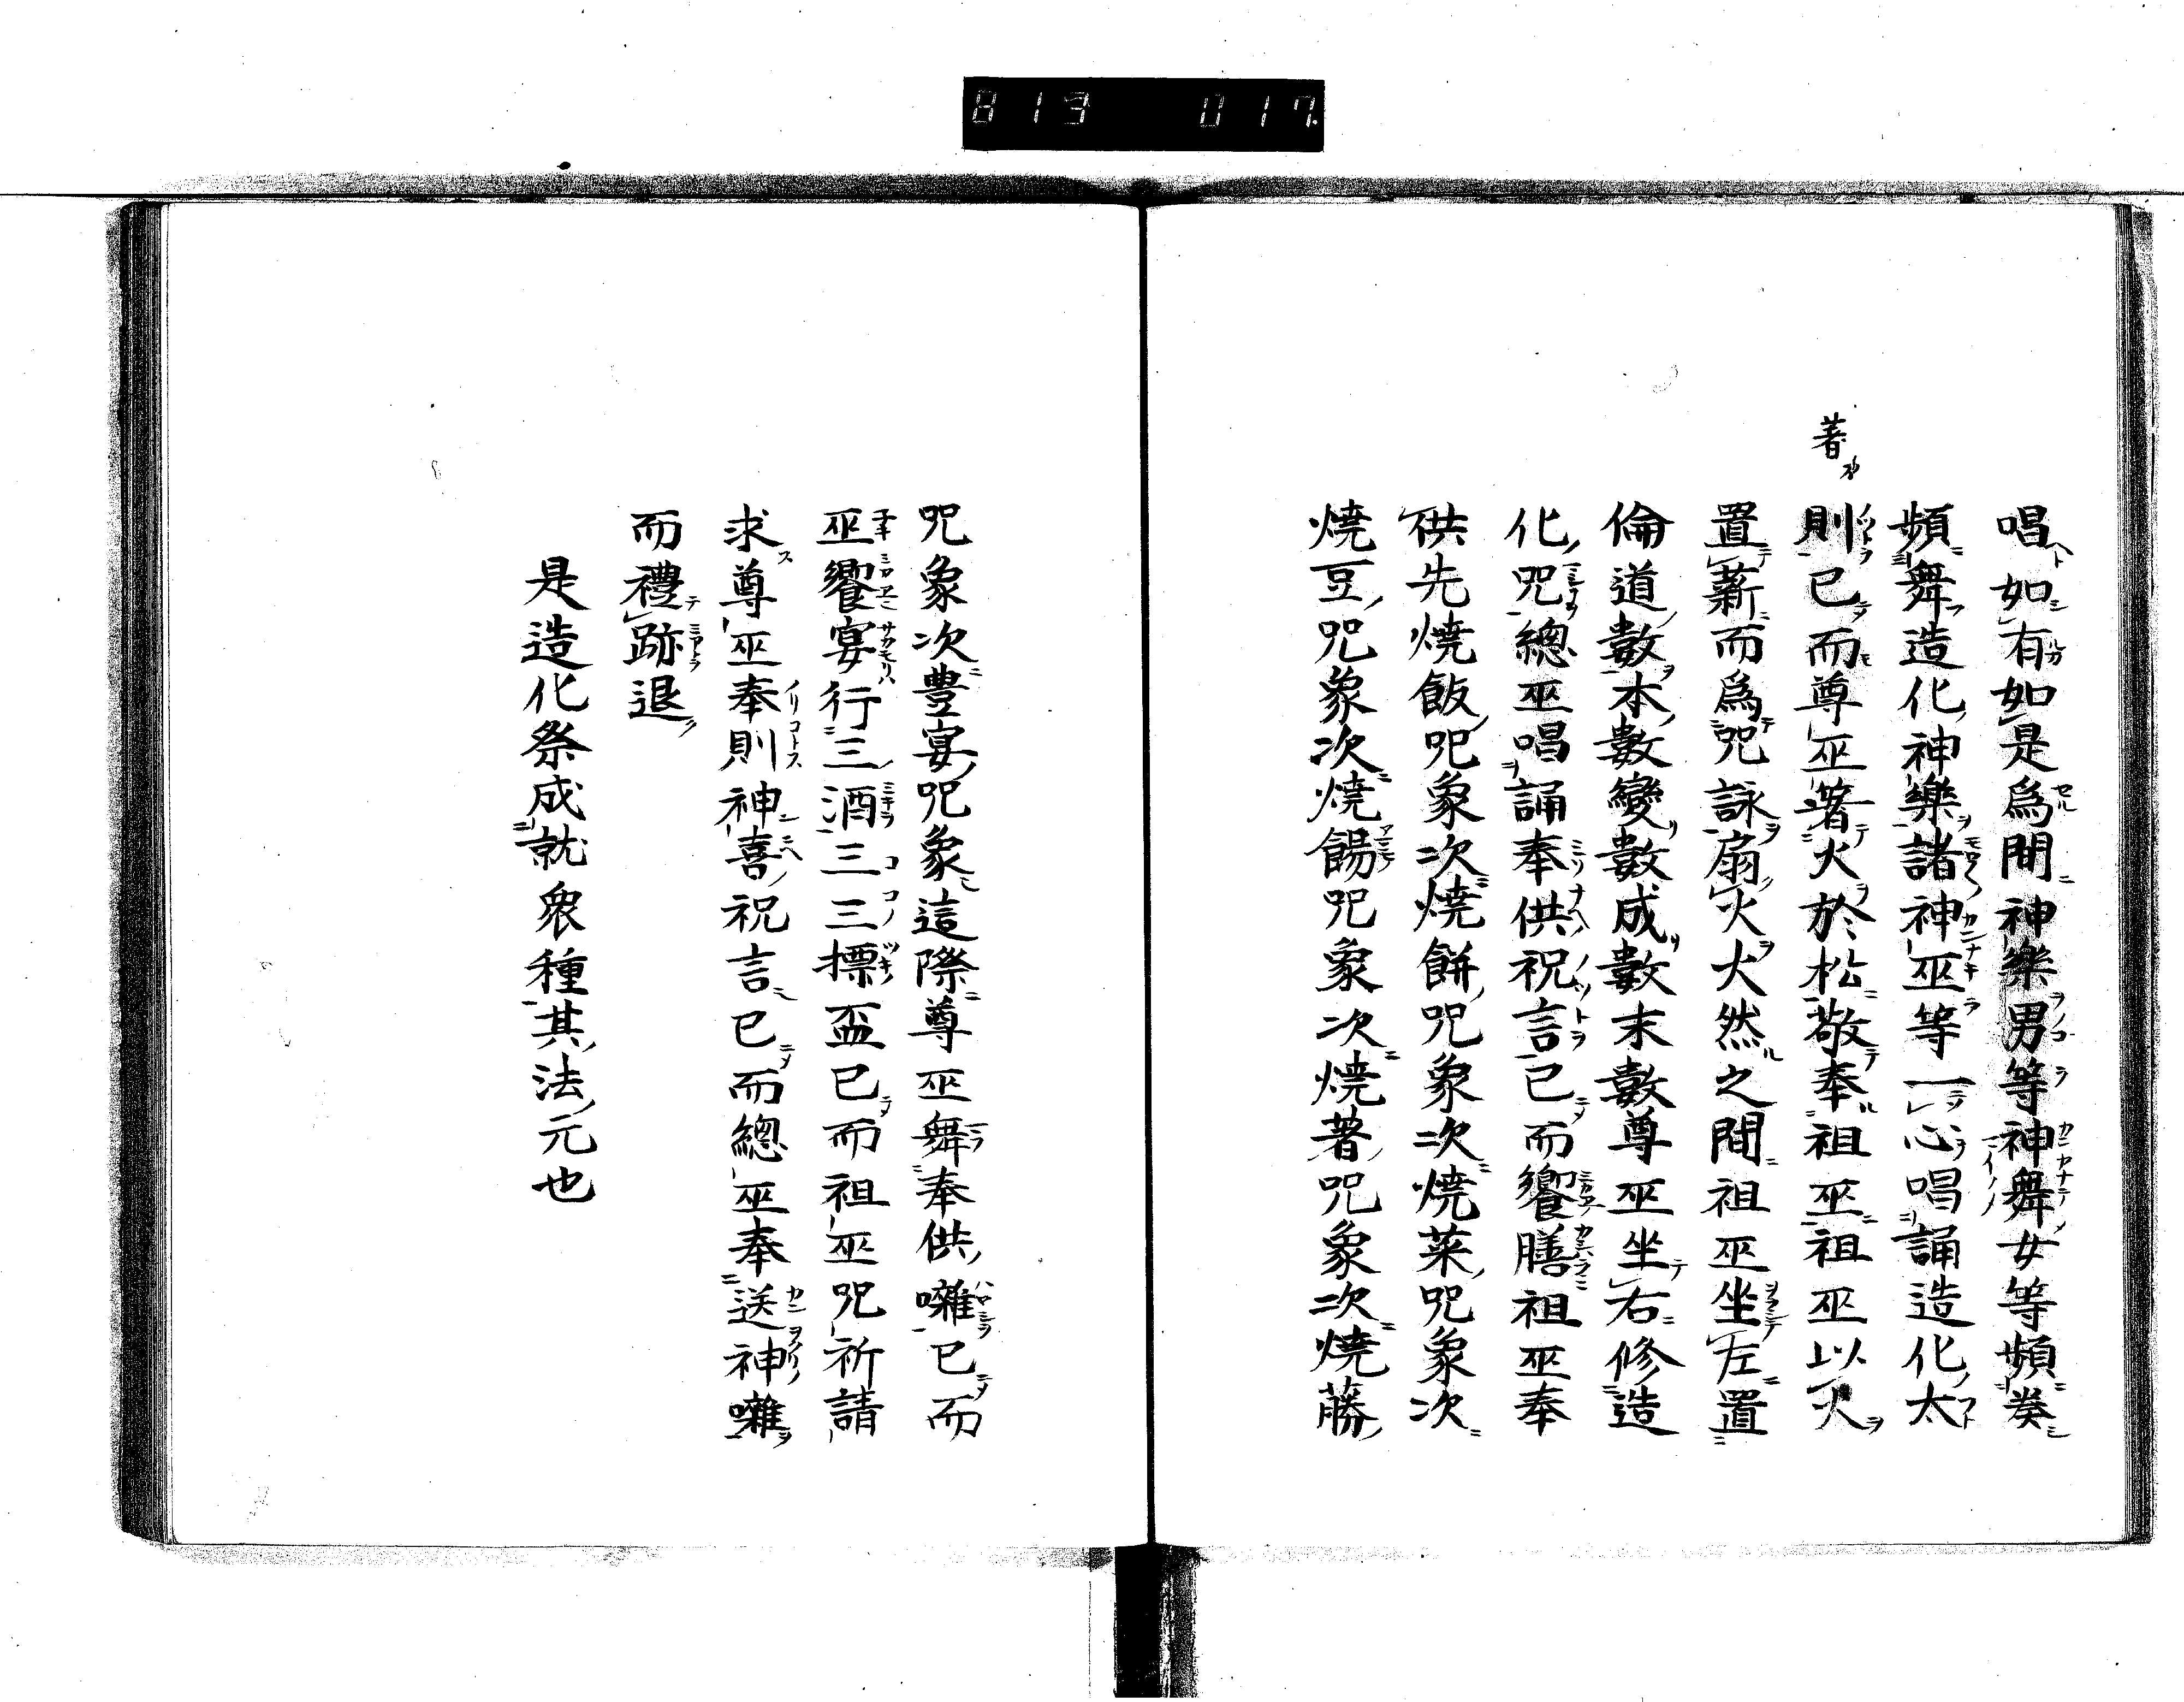 813 017
唱如有如是爲間神樂男等神舞女等頻奏
頻舞造化神樂諸神巫等一心唱誦造化太
著
則已而尊巫著火於松敬奉祖巫祖巫以火
置薪而爲咒詠扇火火然之間祖巫坐左置
倫道數本數變數成數末數尊巫坐右修造
化咒總巫唱誦奉供祝言已而饗膳祖巫奉
供先燒飯咒象次燒餅咒象次燒菜咒象次
燒豆咒象次燒餳咒象次燒著咒象次燒藤
咒象次豊宴咒象這際尊巫舞奉供囃已而
巫饗宴行三酒三三標盃已而祖巫咒祈請
求尊巫奉則神喜祝言已而總巫奉送神囃
而禮跡退
是造化祭成就衆種其法元也